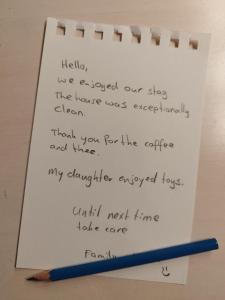 Hello,
we enjoyed our stay
The house was exceptionally
clean.
Thank you for the coffee
and thee.
My daughter enjoyed toys.
Until next time
take care
Family